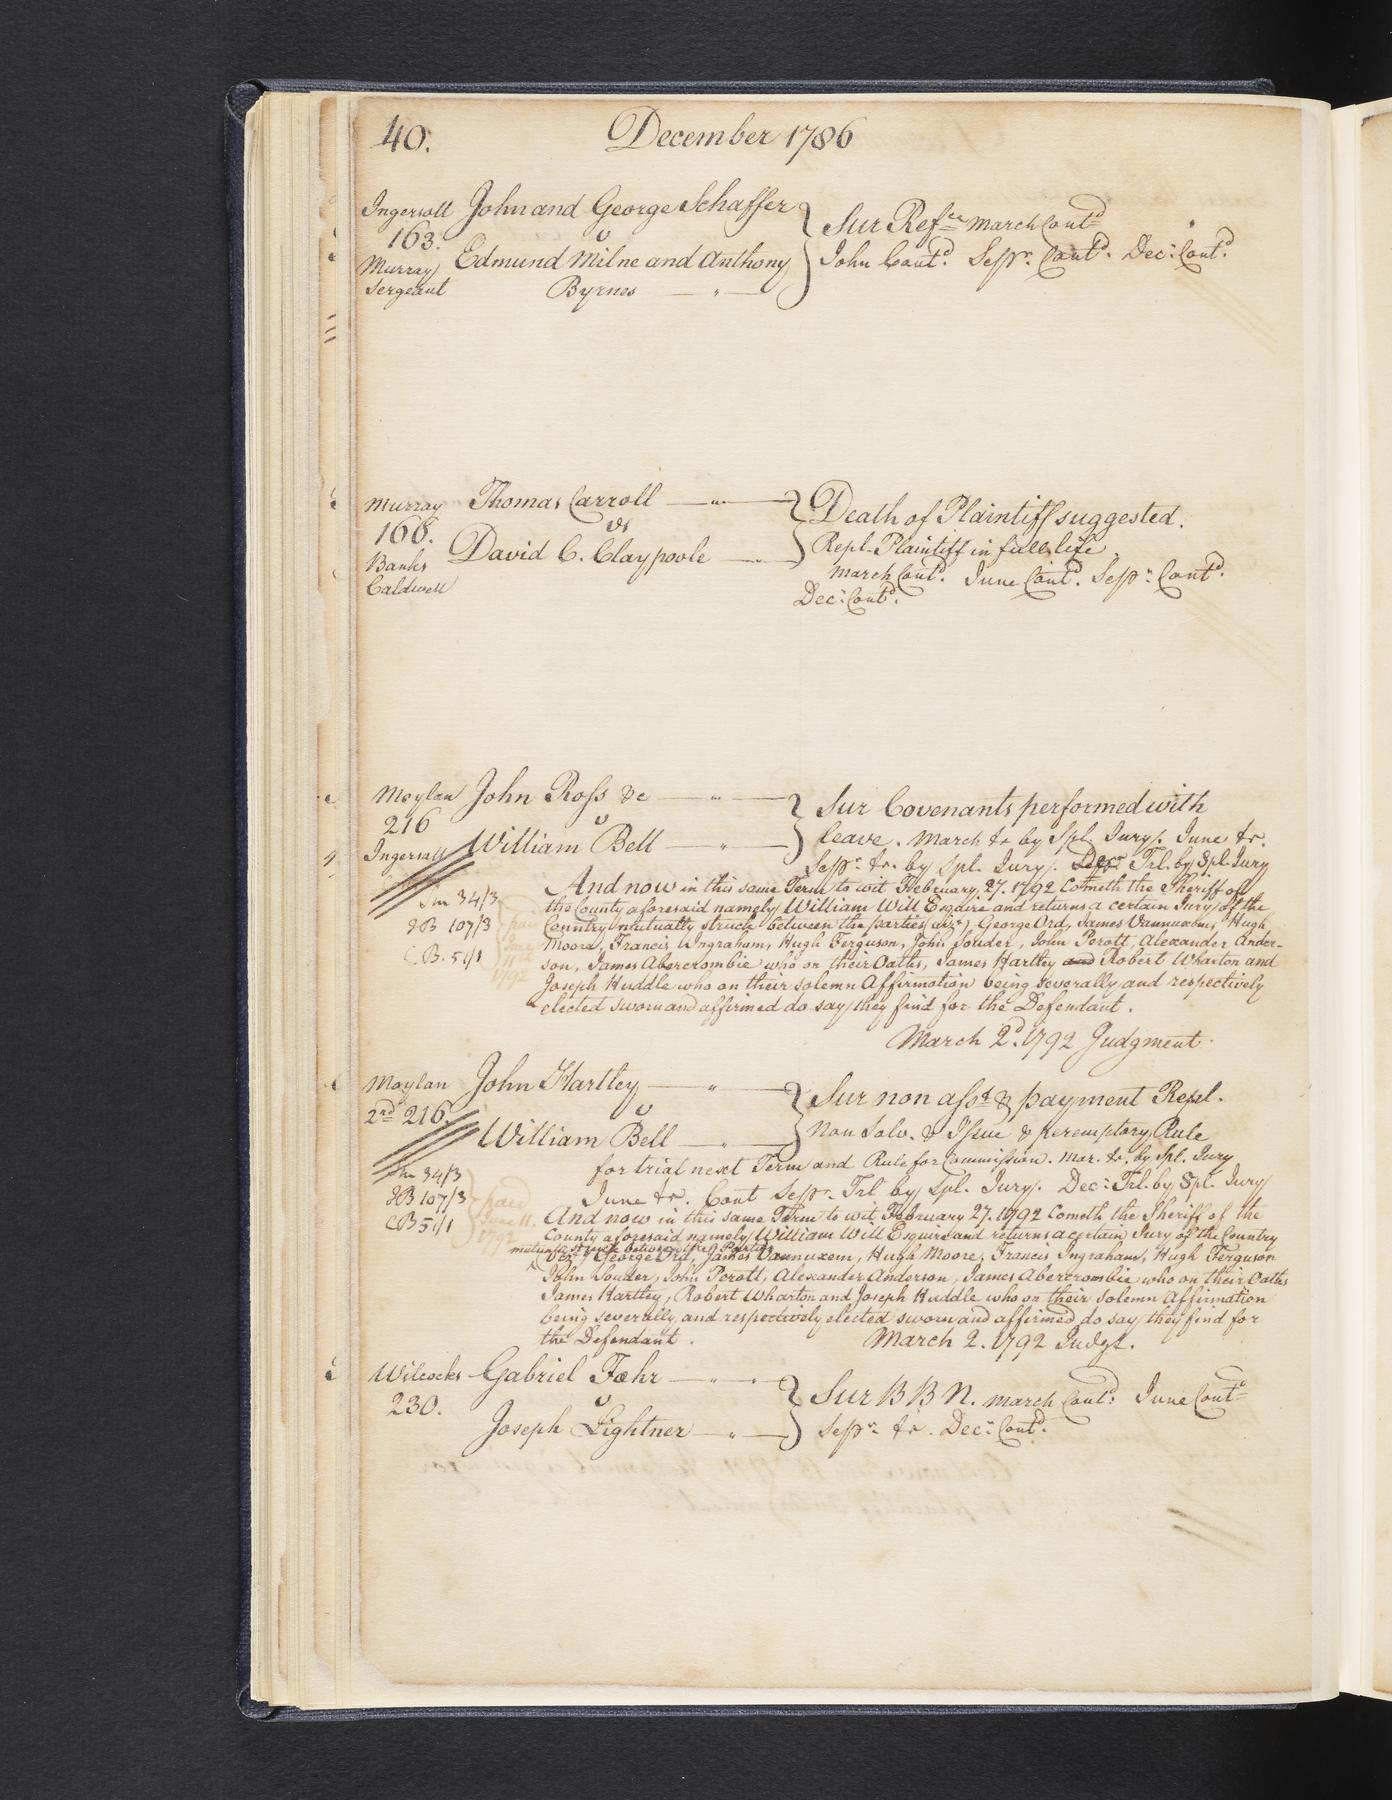 40. December 1786
Ingersoll John and George Schaffer
163. v
Murray Edmund Milne and Anthony
Sergeant Byrnes
Sur Ref.ce March Cont.d
John Cont.d Sepr. Cont.d Dec.r Cont.d
Murray Thomas Carroll
168. vs
Banks David C. Claypoole
Caldwell
Death of Plaintiff suggested.
Repl. Plaintiff in full life
March Cont.d June Cont.d Sepr. Cont.d
Dec.r Cont.d
Moylan John Ross &c
216 v
Ingersoll William Bell
Sur Covenants performed with
leave. March tr by Spl. Jury. June tr.
Sepr. tr. by Spl. Jury. Decr Trl. by Spl. Jury
And now in this same Term to wit February 27. 1792 Cometh the Sheriff of
the County aforesaid namely William Will Esquire and returns a certain Jury of the
Country mutually struck between the parties (vizt) George Ord, James Vannuxem, Hugh
Moore, Francis Ingraham, Hugh Ferguson, John Souder, John Perott, Alexander Ander-
son, James Abercrombie who on their Oaths, James Hartley and Robert Wharton and
Joseph Huddle who on their solemn Affirmation being severally and respectively
elected sworn and affirmed do say they find for the Defendant.
34/3
107/3
C.B. 51/1
paid
June
11th
1792
March 2.d 1792 Judgment.
Moylan John Hartley
2nd 216. v
William Bell
Sur non asst & payment Repl.
Non Solv. & Issue & peremptory Rule
for trial next Term and Rule for Commission. Mar. tr. by Spl. Jury
June tr. Cont Sepr. Trl by Spl. Jury. Dec.r Trl. by Spl. Jury
34/3
107/3
CB 51/1
paid
June 11.
1792
And now in this same Term to wit February 27. 1792 Cometh the Sheriff of the
County aforesaid namely William Will Esquire and returns a certain Jury of the Country
mutually struck between the Parties
(vizt) George Ord, James Vannuxem, Hugh Moore, Francis Ingraham, Hugh Ferguson
John Souder, John Perott, Alexander Anderson, James Abercrombie who on their Oaths
James Hartley, Robert Wharton and Joseph Huddle who on their solemn Affirmation
being severally and respectively elected sworn and affirmed do say they find for
the Defendant. March 2. 1792 Judgt.
Wilcocks Gabriel Fæhr
230. v
Joseph Lightner
Sur B B N. March Cont.d June Cont.d
Sepr. tr. Dec.r Cont.d